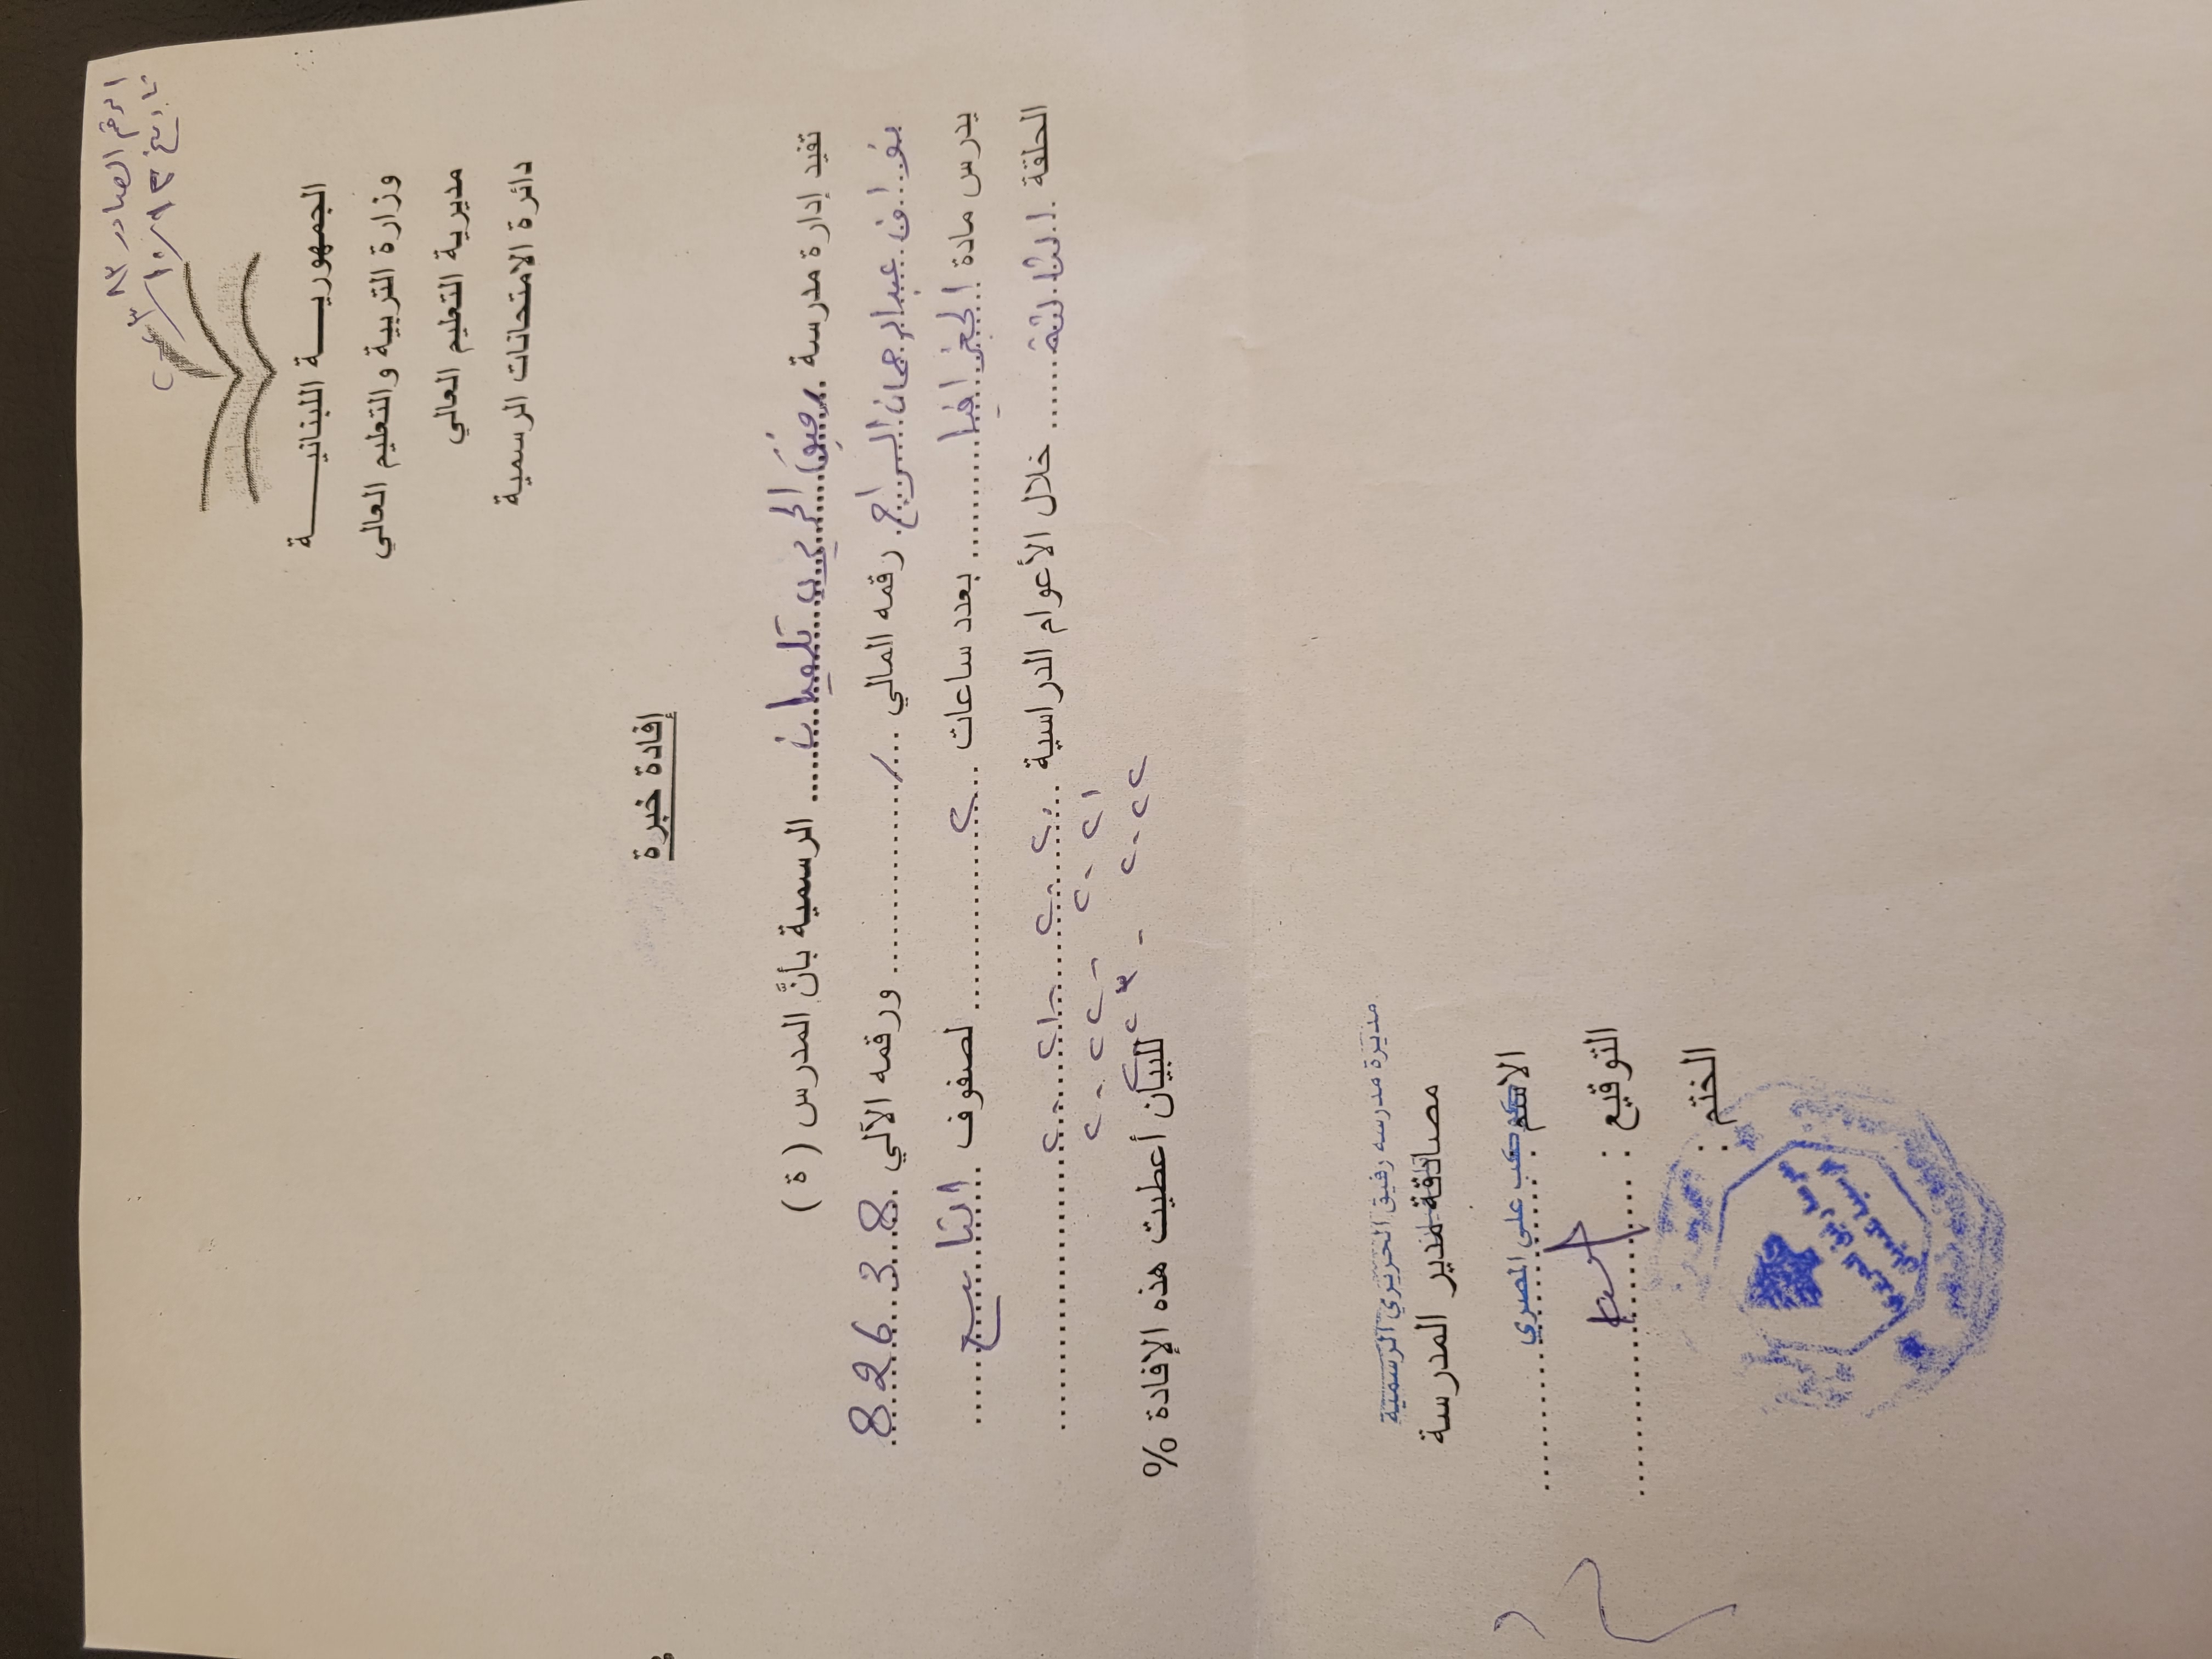 الرقم الصادر ٨٣
الجمهورية اللبنانية
وزارة التربية والتعليم العالي
مديرية التعليم العالي
دائرة الامتحانات الرسمية
إفادة خبرة
تفيد إدارة مدرسة رفيق الحريري الرسمية بأنَّ المدرس ( ة )
عبدالرحمان السراج رقمه المالي / ورقمه الآلي 826388
يدرس مادة الجغرافيا بعدد ساعات ٢ لصفوف التاسع
الحلقة الثالثة خلال الأعوام الدراسية ٢٠٢٠ - ٢٠٢١
٢٠٢١ - ٢٠٢٢
٢٠٢٢ - ٢٠٢٣
للبيان أعطيت هذه الإفادة %
مديرة مدرسة رفيق الحريري الرسمية
مصادقة مدير المدرسة
الاسم : كوكب علي المصري
التوقيع :
الختم :